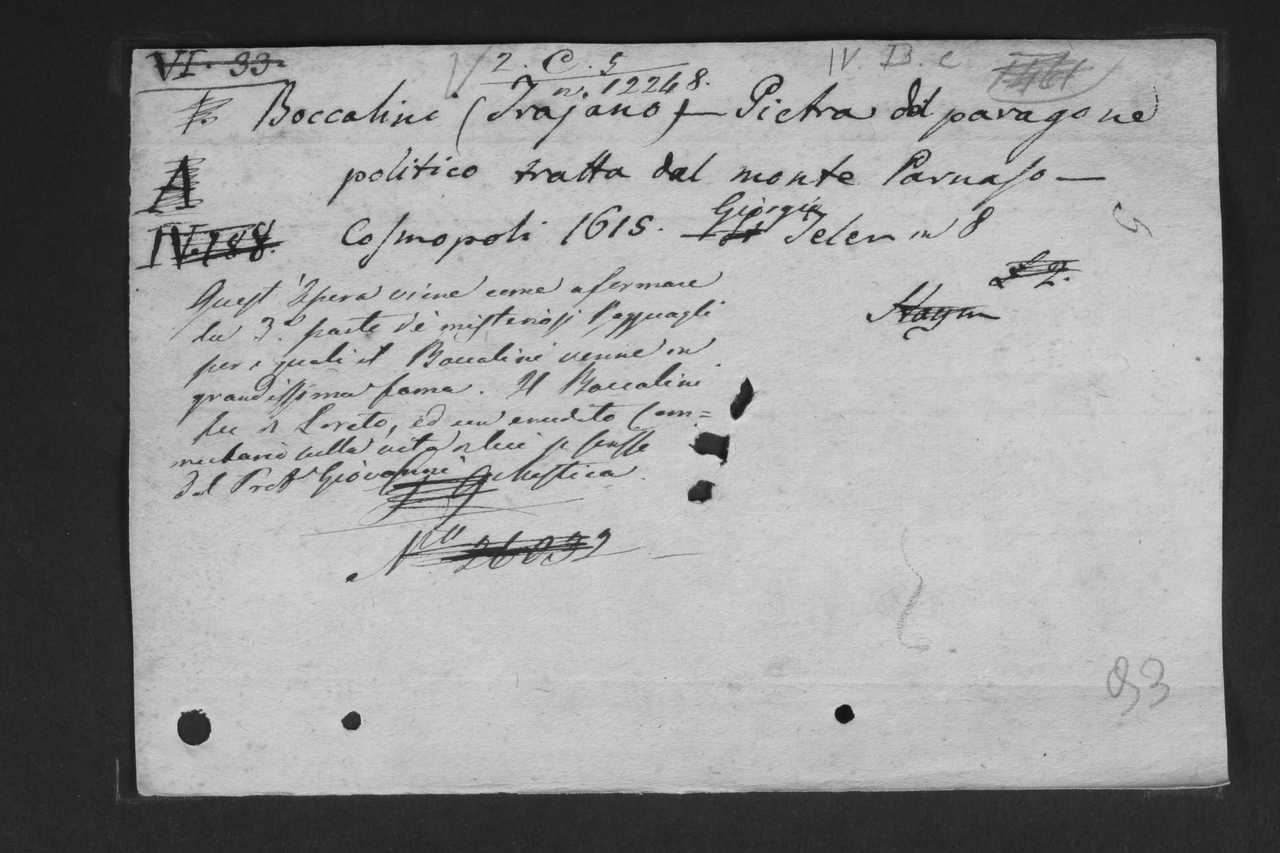 VI. 33.
2. C. 5
n. 12248.
IV B. c
Boccalini (Trajano) — Pietra del paragone
politico tratta dal monte Parnaso —
A
IV. 188.
Cosmopoli 1615. Giorgio Teler in 8
5
£ 2.
Quest'Opera viene come a formare
la 3.ª parte de' misteriosi Ragguagli
per i quali il Boccalini venne in
grandissima fama. Il Boccalini
fu di Loreto, ed un erudito Com=
mentario sulla vita di lui si scrisse
dal Prof. Giovanni Mestica.
N.º 26032
93